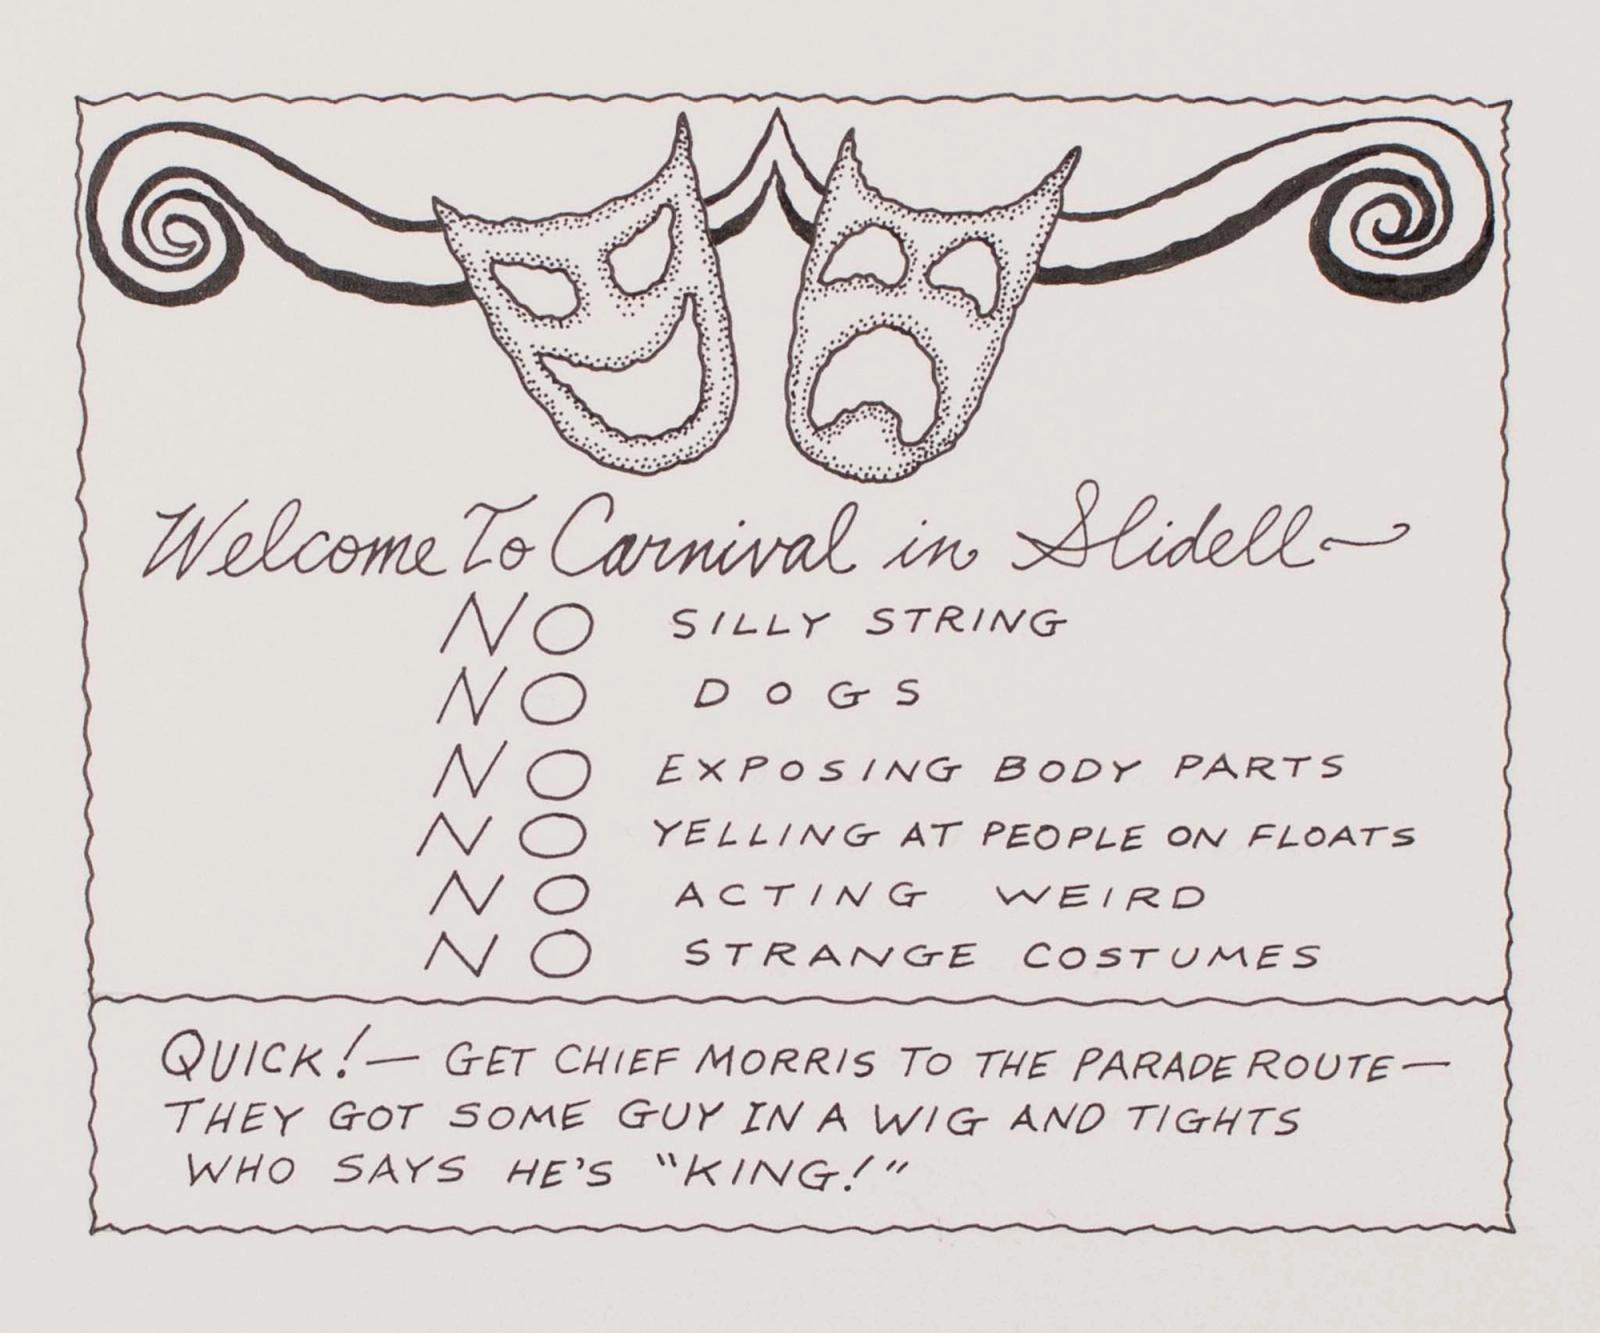 Welcome To Carnival in Slidell~
NO SILLY STRING
NO DOGS
NO EXPOSING BODY PARTS
NO YELLING AT PEOPLE ON FLOATS
NO ACTING WEIRD
NO STRANGE COSTUMES
QUICK!— GET CHIEF MORRIS TO THE PARADE ROUTE—
THEY GOT SOME GUY IN A WIG AND TIGHTS
WHO SAYS HE'S "KING!"